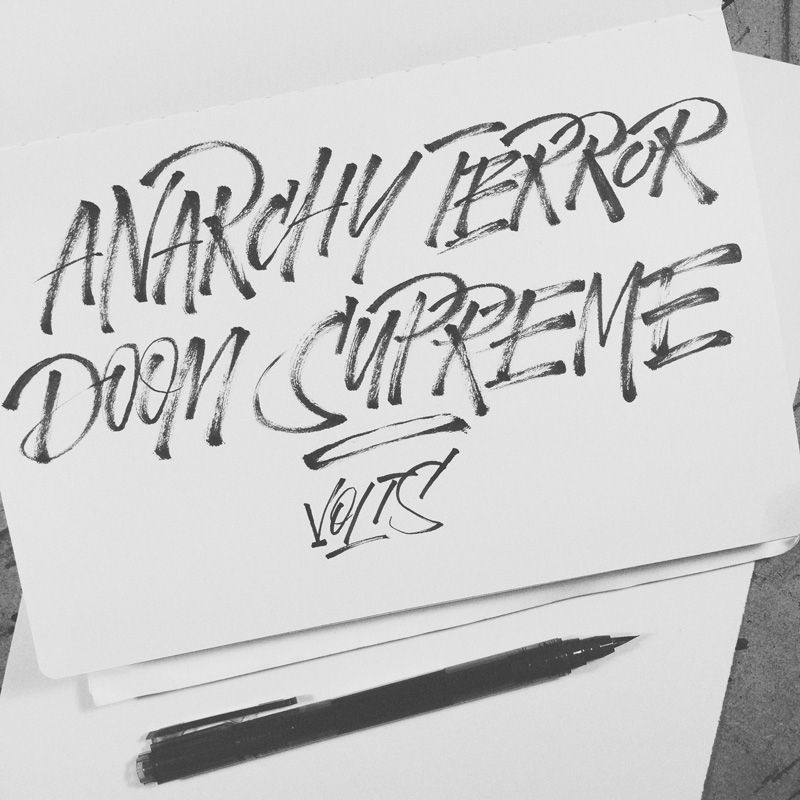 ANARCHY TERROR
DOOM SUPREME
VOLTS